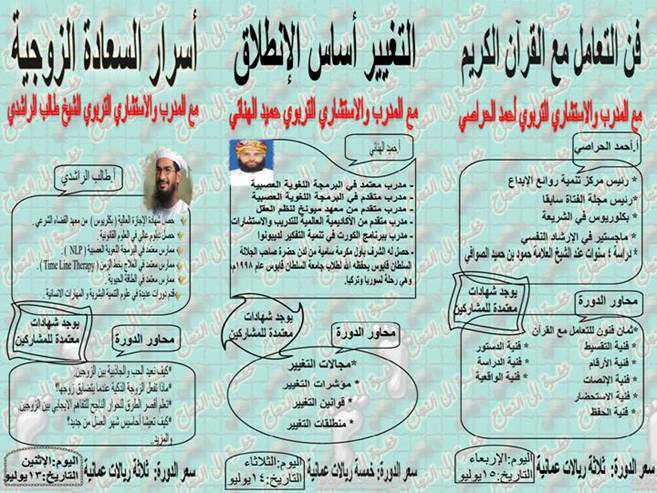 فن التعامل مع القرآن الكريم
مع المدرب والاستشاري التربوي أحمد الحراصي
أ.أحمد الحراصي
* رئيس مركز تنمية روائع الإبداع
* رئيس مجلة الفتاة سابقا
* بكلوريوس في الشريعة
* ماجستير في الإرشاد النفسي
* دراسة ٤ سنوات عند الشيخ العلامة حمود بن حميد الصوافي
يوجد شهادات
معتمدة للمشاركين
محاور الدورة
*ثمان فنون للتعامل مع القرآن
* فنية التقسيط
* فنية الأرقام
* فنية الإنصات
* فنية الاستحضار
* فنية الحفظ
* فنية الدستور
* فنية الدراسة
* فنية الواقعية
سعر الدورة: ثلاثة ريالات عمانية
اليوم:الإربعاء
التاريخ:١٥يوليو
التغيير أساس الإنطلاق
مع المدرب والاستشاري التربوي حميد الهنائي
أ.حميد الهنائي
- مدرب معتمد في البرمجة اللغوية العصبية
- مدرب متقدم في البرمجة اللغوية العصبية
- مدرب متقدم من معهد ميونخ لنظم العقل
- مدرب متقدم من الأكاديمية العالمية للتدريب والاستشارات
- مدرب ببرنامج الكورت في تنمية التفكير لديبونوا
- حصل له الشرف بأول مكرمة سامية من لدن حضرة صاحب الجلالة
السلطان قابوس يحفظه الله لطلاب جامعة السلطان قابوس عام ١٩٩٨م،
وهي رحلة لسوريا وتركيا.
يوجد شهادات
معتمدة للمشاركين
محاور الدورة
*مجالات التغيير
* مؤشرات التغيير
* قوانين التغيير
* منطلقات التغيير
سعر الدورة: خمسة ريالات عمانية
اليوم:الثلاثاء
التاريخ:١٤يوليو
أسرار السعادة الزوجية
مع المدرب والاستشاري التربوي الشيخ طالب الراشدي
أ.طالب الراشدي
حصل شهادة الإجازة العالية (بكلريوس) من معهد القضاء الشرعي.
حصل دبلوم عالي في العلوم القانونية.
ممارس معتمد في البرمجة اللغوية العصبية ( NLP ).
ممارس معتمد في العلاج بخط الزمن ( Time Line Therapy )
ممارس معتمد في الطاقة الحيوية
قدم دورات عديدة في علوم التنمية البشرية و المهارات الانسانية.
يوجد شهادات
معتمدة للمشاركين
محاور الدورة
*كيف نعيد الحب والجاذبية بين الزوجين.
*ماذا تفعل الزوجة الذكية عندما يتضايق زوجها؟
*تعلم أقصر الطرق للحوار الناجح للتفاهم الايجابي بين الزوجين
*كيف نعيش أحاسيس شهر العسل من جديد؟
والمزيد..
سعر الدورة: ثلاثة ريالات عمانية
اليوم:الإثنين
التاريخ:١٣يوليو